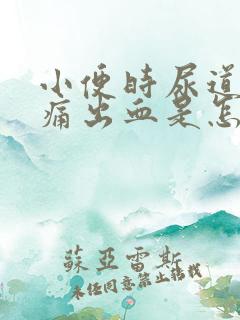 小便时尿道
痛出血是怎
蘇亞雷斯
未经同意禁止转载